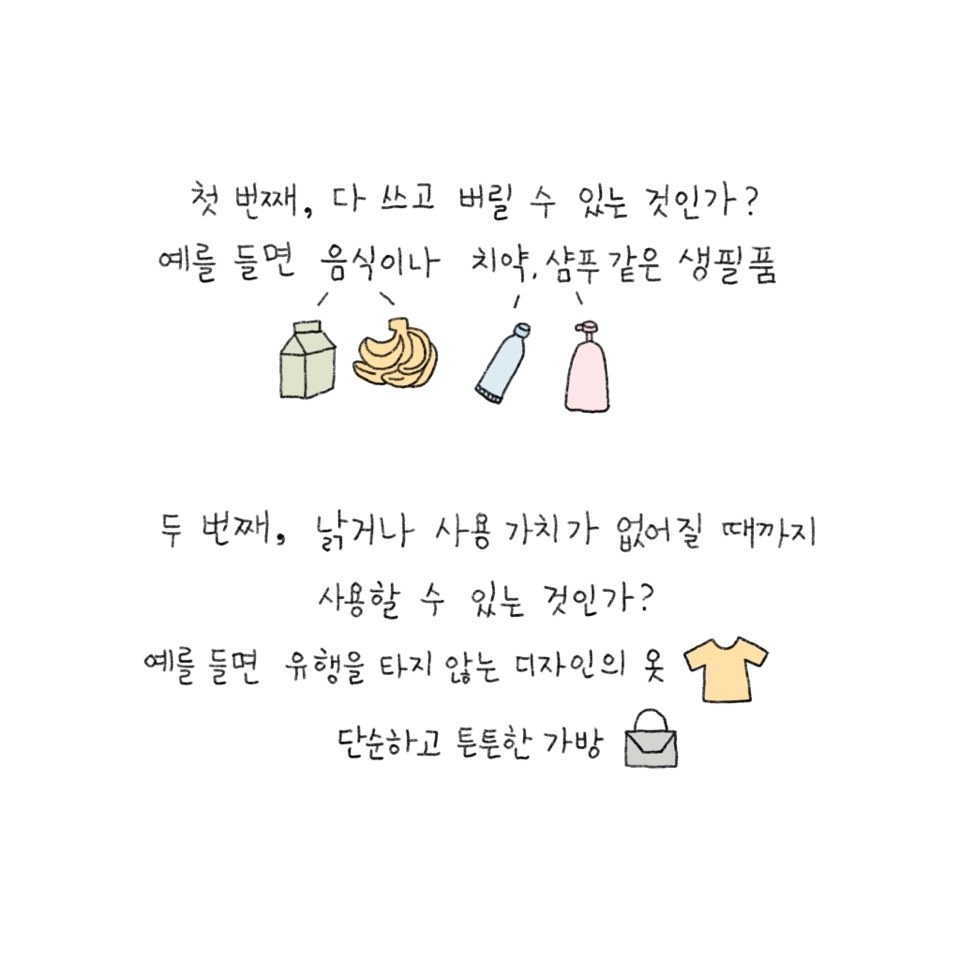 첫 번째, 다 쓰고 버릴 수 있는 것인가?
예를 들면 음식이나 치약, 샴푸 같은 생필품
두 번째, 낡거나 사용 가치가 없어질 때까지
사용할 수 있는 것인가?
예를 들면 유행을 타지 않는 디자인의 옷
단순하고 튼튼한 가방